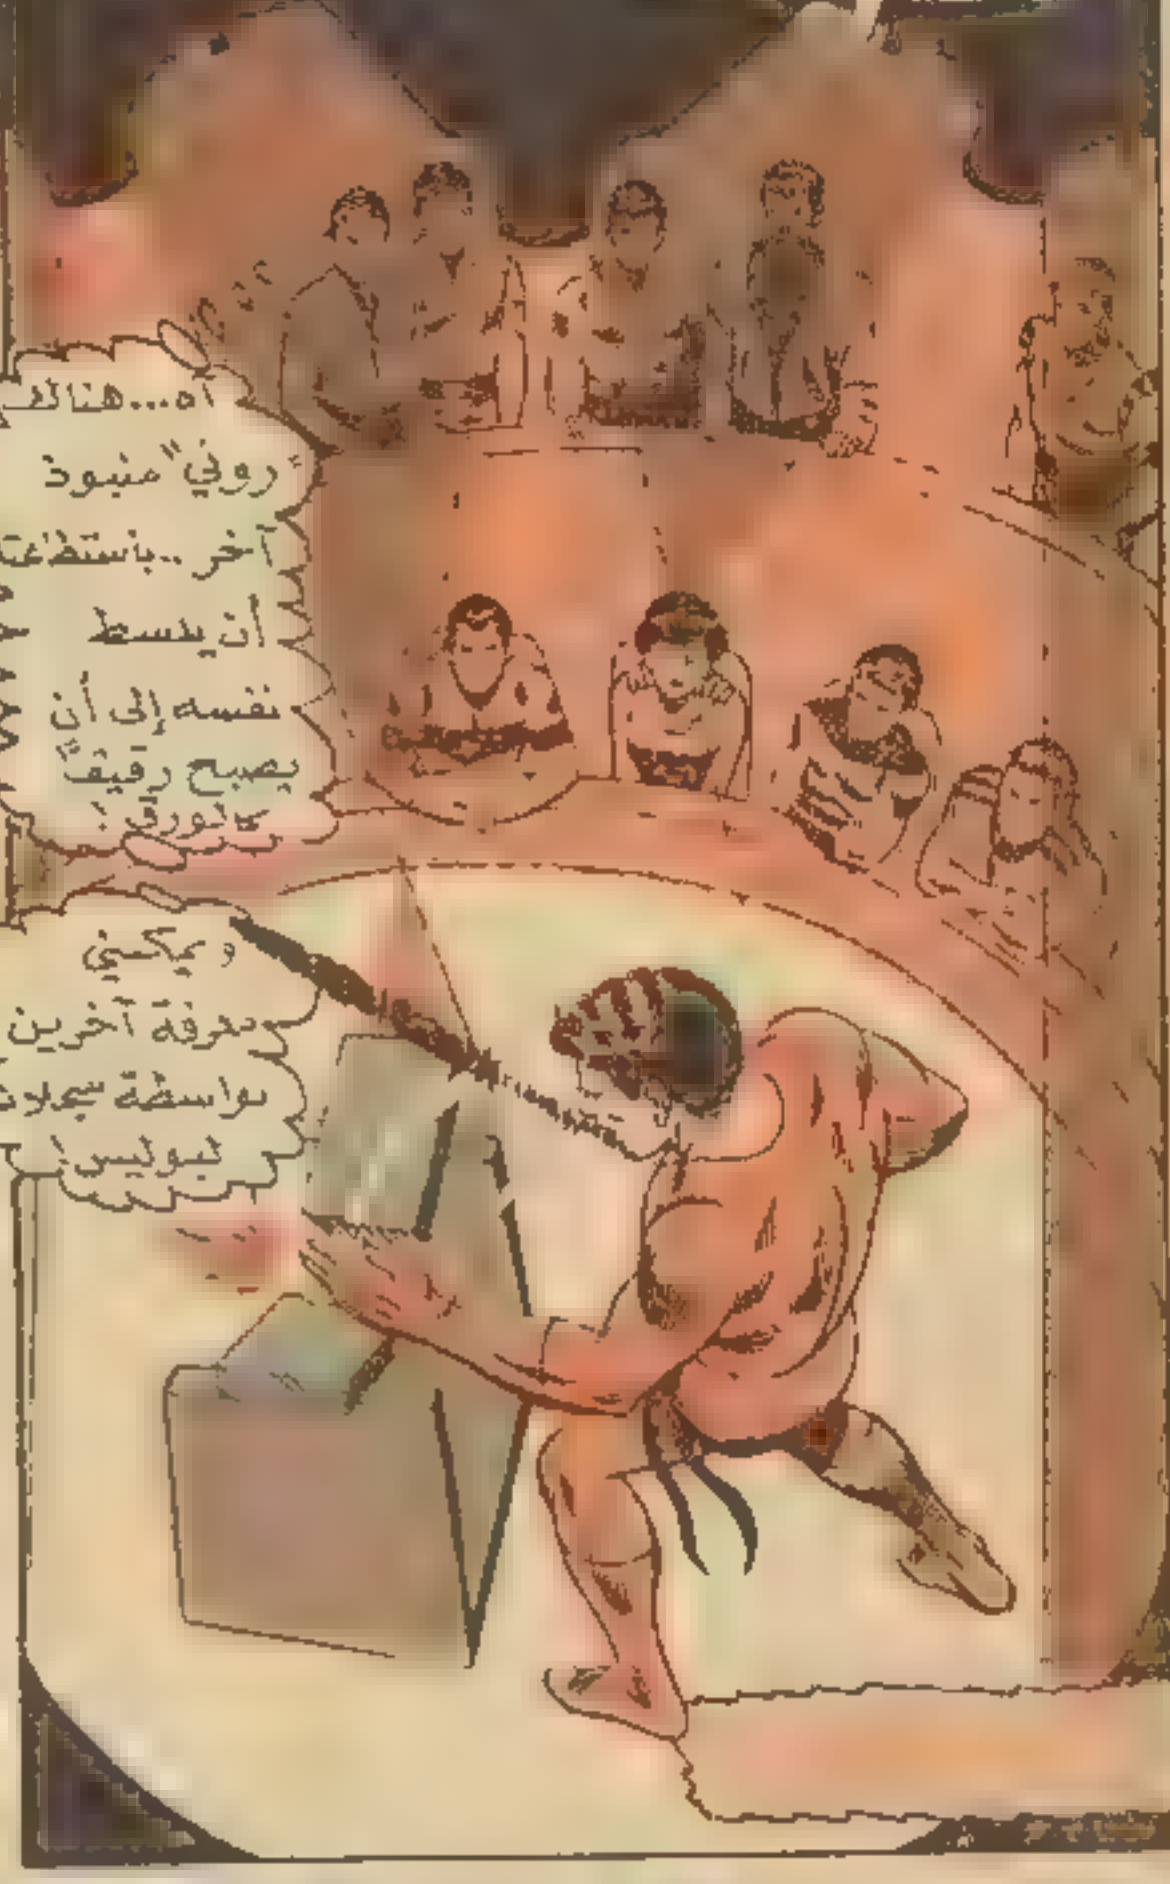 آه...هناك
روني" منبوذ
آخر..
أن يبسط
نفسه إلى أن
يصبح رقيقًا
كالورق!
ويمكنني
معرفة آخرين
بواسطة سجلات
البوليس!